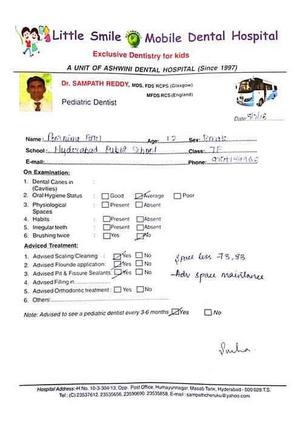 Little Smile Mobile Dental Hospital
Exclusive Dentistry for kids
A UNIT OF ASHWINI DENTAL HOSPITAL (Since 1997)
Dr. SAMPATH REDDY, MDS, FDS RCPS (Glasgow)
MFDS RCS (England)
Pediatric Dentist
Date:
Name: Age: 12 Sex: Female
School: Hyderabad Public School Class: 7F
E-mail: Phone:
On Examination:
1. Dental Canes in (Cavities)
2. Oral Hygiene Status : Good Average Poor
3. Physiological Spaces : Present Absent
4. Habits : Present Absent
5. Irregular teeth : Present Absent
6. Brushing twice : Yes No
Adviced Treatment:
1. Advised Scaling/Cleaning : Yes No
2. Advised Flounde application: Yes No
3. Advised Pit & Fissure Sealants Yes No
4. Advised Filling in
5. Advised Orthodontic treatment : Yes No
6. Others:
Space loss - 73, 83
- Adv space maintainance
Note: Advised to see a pediatric dentist every 3-6 months Yes No
Hospital Address: H No. 10-3-304/13, Opp. Post Office, Humayunnagar, Masab Tank, Hyderabad - 500 028 T.S.
Tel: (C) 23537612, 23535656, 23590690, 23535858, R: 23530888. E-mail : sampathcheruku@yahoo.com